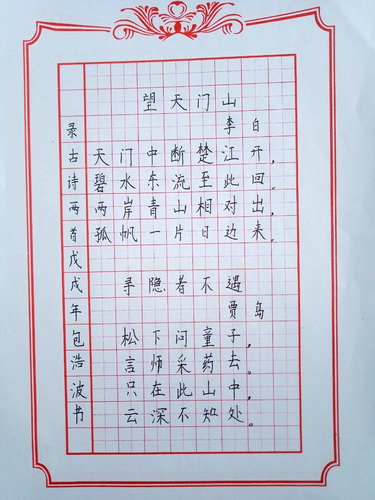 望天门山
李白
天门中断楚江开，
碧水东流至此回。
两岸青山相对出，
孤帆一片日边来。
寻隐者不遇
贾岛
松下问童子，
言师采药去。
只在此山中，
云深不知处。
录古诗两首戊戌年包浩波书